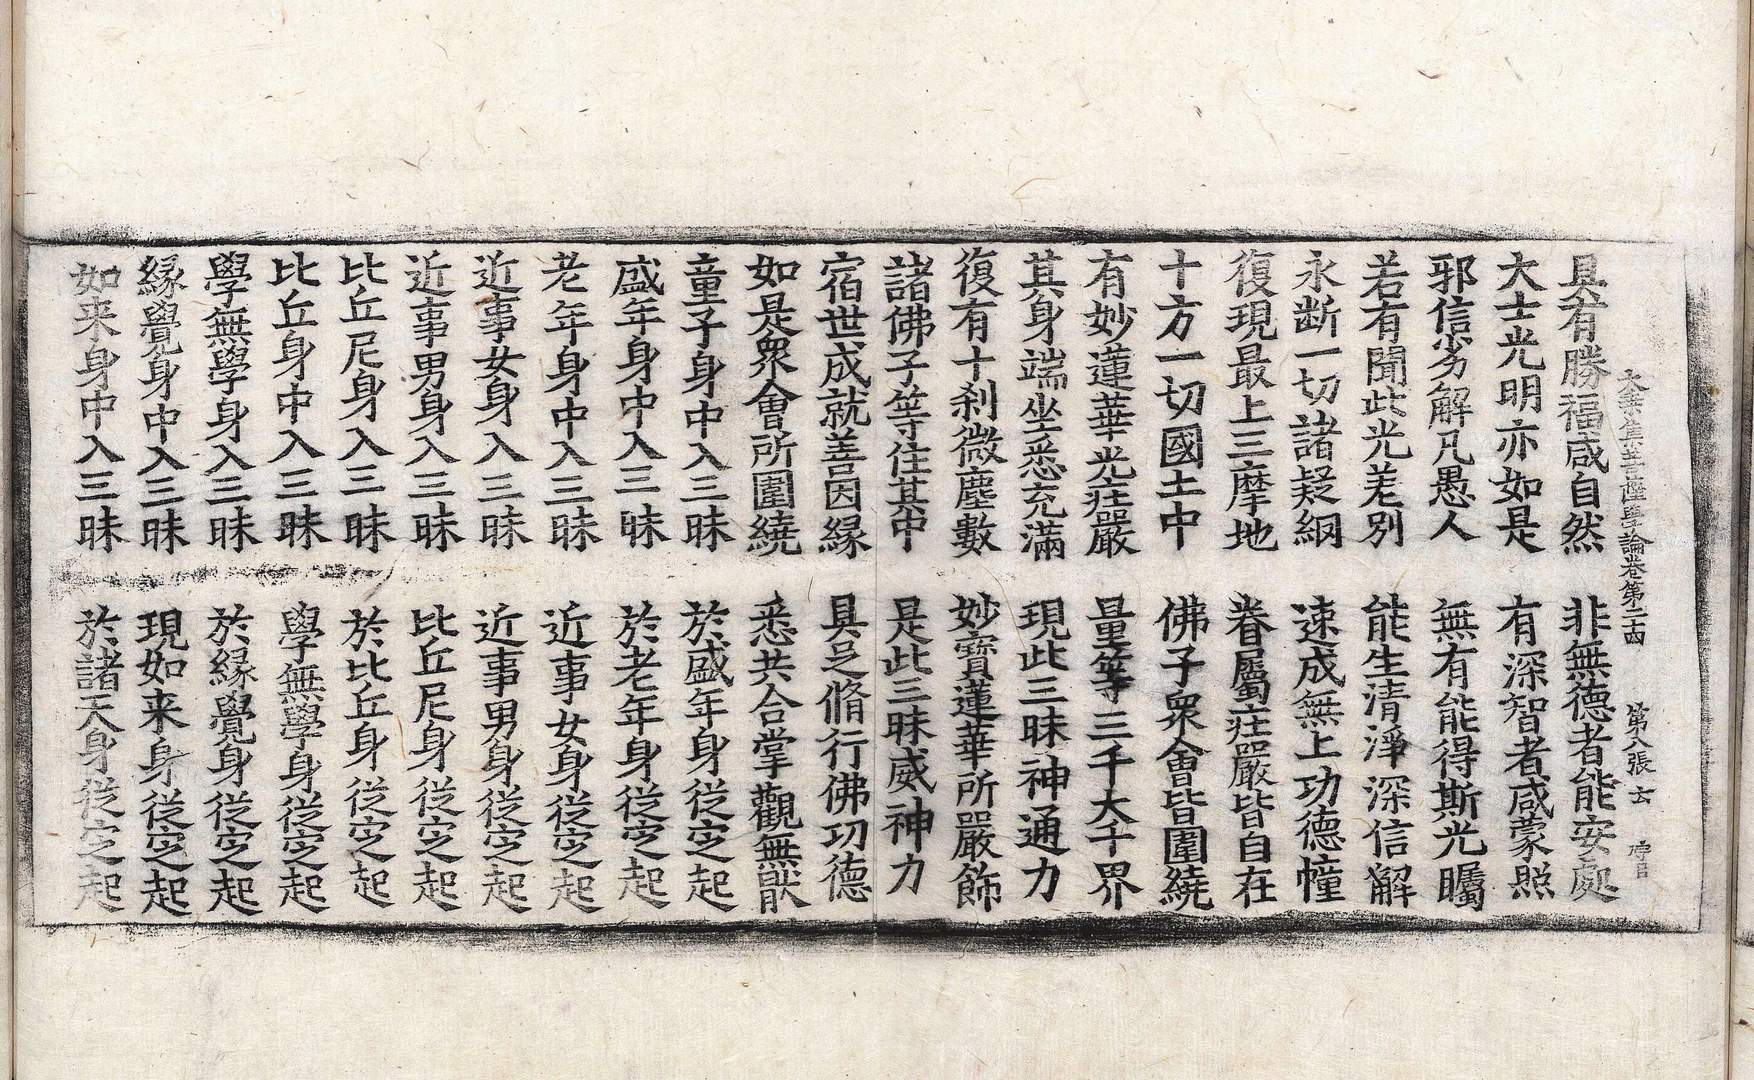 大乘集菩薩學論卷第二十四　第八張　去
具有勝福咸自然　非無德者能安處
大士光明亦如是　有深智者咸蒙照
邪信劣解凡愚人　無有能得斯光矚
若有聞此光差別　能生清淨深信解
永断一切諸疑網　速成無上功德幢
復現最上三摩地　眷屬莊嚴皆自在
十方一切國土中　佛子衆會皆圍繞
有妙蓮華光莊嚴　量等三千大千界
其身端坐悉充滿　現此三昧神通力
復有十刹微塵數　妙寶蓮華所嚴飾
諸佛子等住其中　是此三昧威神力
宿世成就善因緣　具足脩行佛功德
如是衆會所圍繞　悉共合掌觀無猒
童子身中入三昧　於盛年身從定起
盛年身中入三昧　於老年身從定起
老年身中入三昧　近事女身從定起
近事女身入三昧　近事男身從定起
近事男身入三昧　比丘尼身從定起
比丘尼身入三昧　於比丘身從定起
比丘身中入三昧　學無學身從定起
學無學身入三昧　於緣覺身從定起
緣覺身中入三昧　現如来身從定起
如来身中入三昧　於諸天身從定起